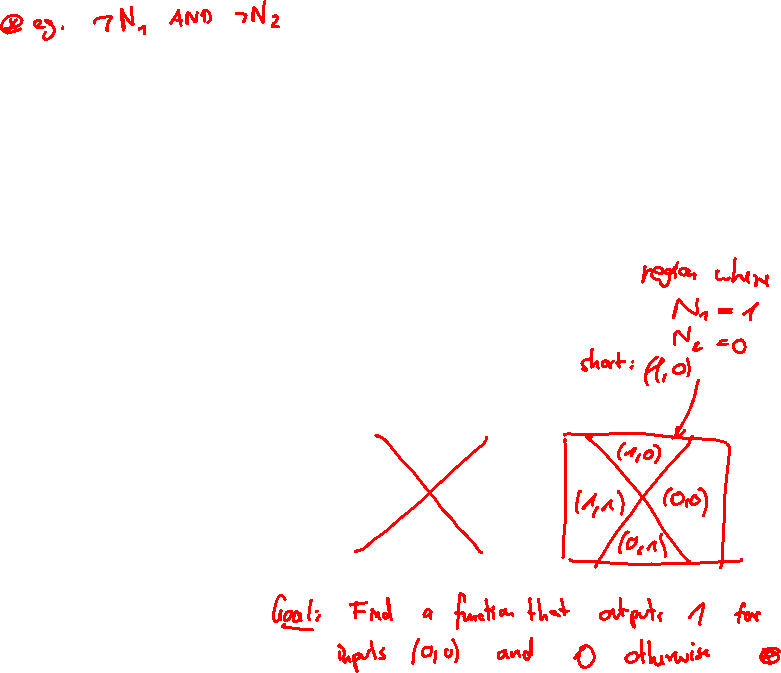 ⊛ eg. ¬N₁ AND ¬N₂
region where
N₁ = 1
N₂ = 0
short: (1,0)
(1,0)
(1,1) (0,0)
(0,1)
Goal: Find a function that outputs 1 for
inputs (0,0) and 0 otherwise ⊛